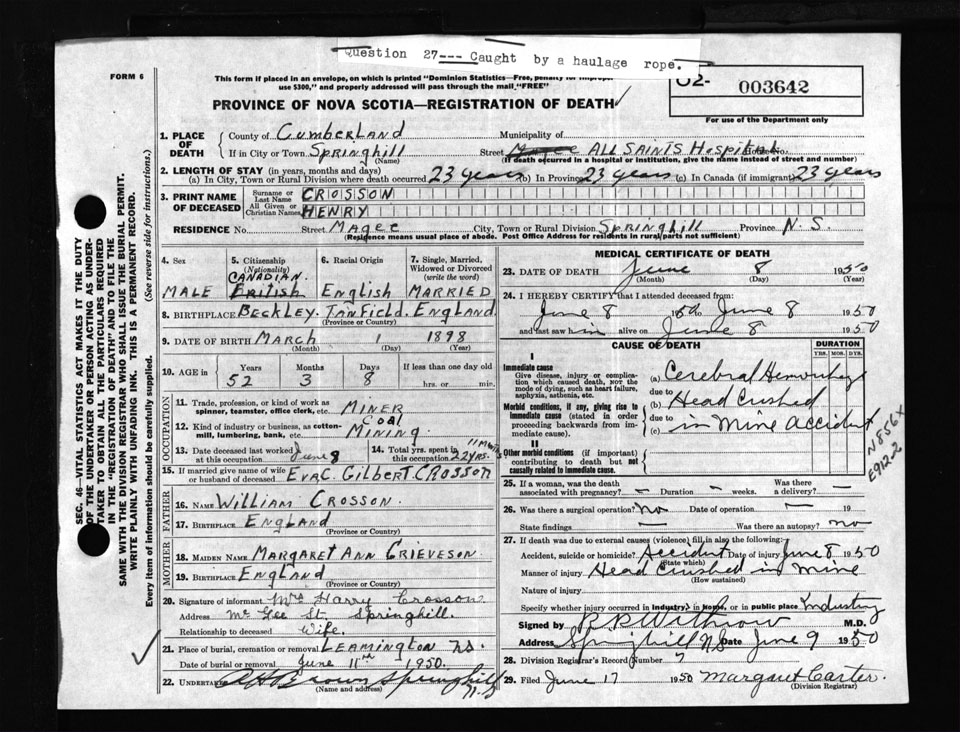 Question 27--- Caught by a haulage rope.
FORM 6
This form if placed in an envelope, on which is printed "Dominion Statistics—Free, penalty for improper
use $300," and properly addressed will pass through the mail "FREE"
PROVINCE OF NOVA SCOTIA—REGISTRATION OF DEATH
003642
For use of the Department only
1. PLACE OF DEATH
County of Cumberland Municipality of
If in City or Town Springhill Street Magee All Saints Hospital House No.
(Name) (If death occurred in a hospital or institution, give the name instead of street and number)
2. LENGTH OF STAY (in years, months and days)
(a) In City, Town or Rural Division where death occurred 23 years (b) In Province 23 years (c) In Canada (if immigrant) 23 years
3. PRINT NAME OF DECEASED
Surname or Last Name CROSSON
All Given or Christian Names HENRY
RESIDENCE No. Street Magee City, Town or Rural Division Springhill Province N.S.
(Residence means usual place of abode. Post Office Address for residents in rural parts not sufficient)
4. Sex MALE
5. Citizenship (Nationality) CANADIAN. British
6. Racial Origin English
7. Single, Married, Widowed or Divorced (write the word) MARRIED
8. BIRTHPLACE Beckley. Tanfield. England
(Province or Country)
9. DATE OF BIRTH March 1 1898
(Month) (Day) (Year)
10. AGE in Years 52 Months 3 Days 8 If less than one day old hrs. or min.
OCCUPATION
11. Trade, profession, or kind of work as spinner, teamster, office clerk, etc. MINER
12. Kind of industry or business, as cotton-mill, lumbering, bank, etc. Coal Mining.
13. Date deceased last worked at this occupation June 8
14. Total yrs. spent in this occupation 22 yrs. 11 Months
15. If married give name of wife or husband of deceased Eva C. Gilbert. Crosson
FATHER
16. NAME William Crosson.
17. BIRTHPLACE England
(Province or Country)
MOTHER
18. MAIDEN NAME Margaret Ann Grieveson
19. BIRTHPLACE England
(Province or Country)
20. Signature of informant Mrs Harry Crosson
Address McGee St. Springhill.
Relationship to deceased Wife.
21. Place of burial, cremation or removal Leamington NS.
Date of burial or removal June 11th 1950.
22. UNDERTAKER A H Brown Springhill N.S
(Name and address)
MEDICAL CERTIFICATE OF DEATH
23. DATE OF DEATH June 8 1950
(Month) (Day) (Year)
24. I HEREBY CERTIFY that I attended deceased from:
June 8 1950 to June 8 1950
and last saw him alive on June 8 1950
CAUSE OF DEATH DURATION
YRS. MOS. DYS.
I
Immediate cause
Give disease, injury or complication which caused death, NOT the mode of dying, such as heart failure, asphyxia, asthenia, etc.
(a) Cerebral Hemorrhage
due to
Morbid conditions, if any, giving rise to immediate cause (stated in order proceeding backwards from immediate cause).
(b) Head Crushed
due to
(c) in Mine accident
II
Other morbid conditions (if important) contributing to death but not causally related to immediate cause.
N856X
E912-2
25. If a woman, was the death associated with pregnancy? — Duration — weeks. Was there a delivery? —
26. Was there a surgical operation? no Date of operation — 19
State findings — Was there an autopsy? no
27. If death was due to external causes (violence) fill in also the following:
Accident, suicide or homicide? Accident Date of injury June 8 1950
(State which)
Manner of injury Head Crushed in Mine
(How sustained)
Nature of injury
Specify whether injury occurred in Industry, in Home, or in public place Industry
Signed by Withrow M.D.
Address Springhill NS Date June 9 1950
28. Division Registrar's Record Number 7
29. Filed June 17 1950 Margaret Carter.
(Division Registrar)
SEC. 46—VITAL STATISTICS ACT MAKES IT THE DUTY
OF THE UNDERTAKER OR PERSON ACTING AS UNDER-
TAKER TO OBTAIN ALL THE PARTICULARS REQUIRED
IN THE "REGISTRATION OF DEATH" AND TO FILE THE
SAME WITH THE DIVISION REGISTRAR WHO SHALL ISSUE THE BURIAL PERMIT.
WRITE PLAINLY WITH UNFADING INK. THIS IS A PERMANENT RECORD.
Every item of information should be carefully supplied. (See reverse side for instructions.)